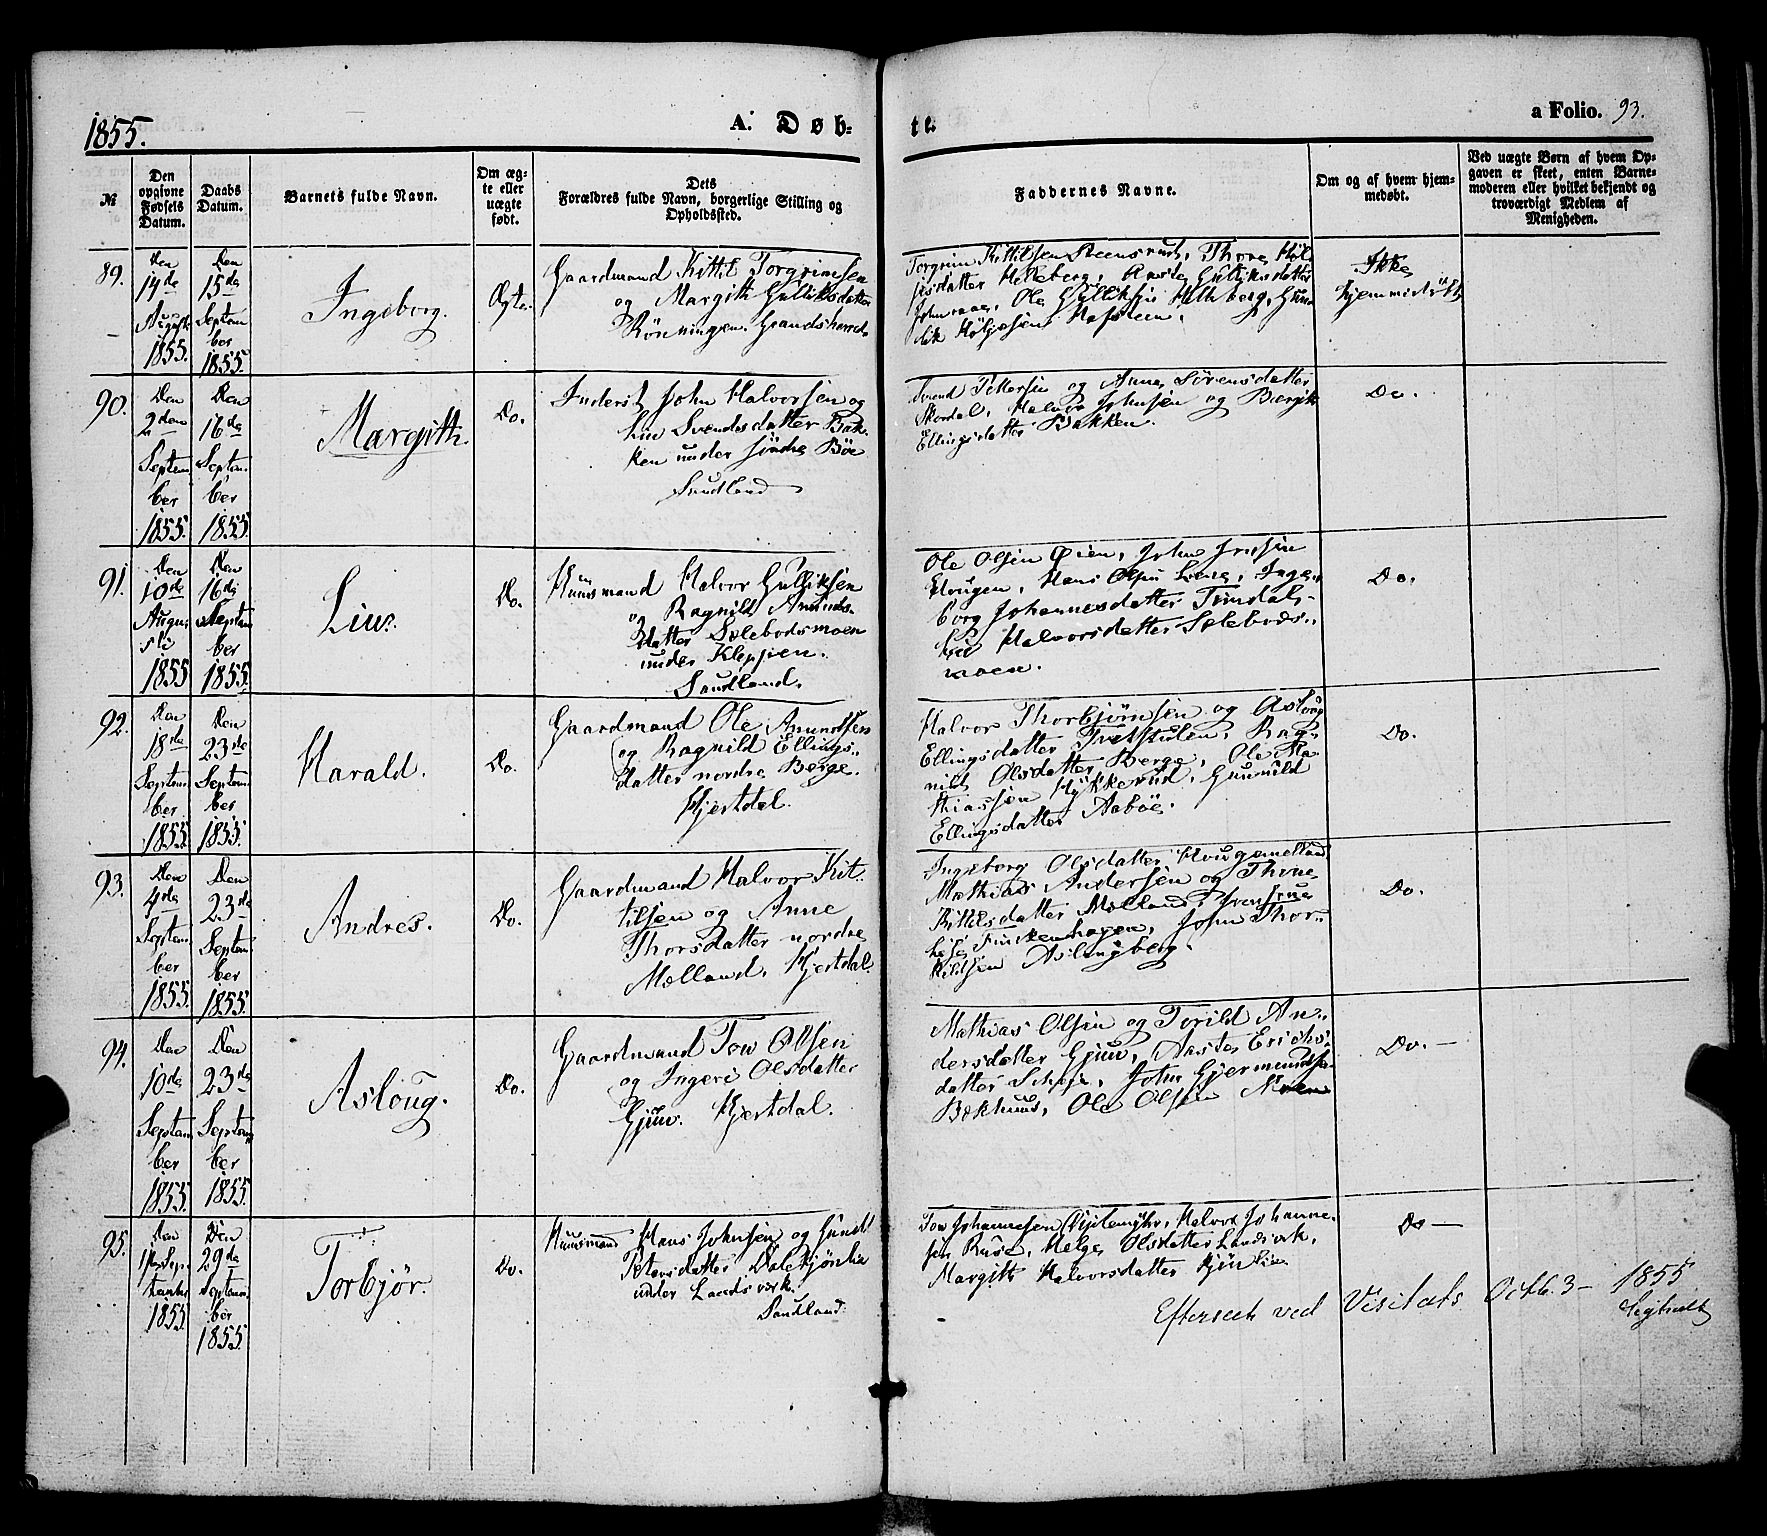 1855.
A. Døb-
te.
a Folio. 93.
№
Den opgivne Fødsels Datum.
Daabs Datum.
Barnets fulde Navn.
Om ægte eller uægte født.
Dets Forældres fulde Navn, borgerlige Stilling og Opholdssted.
Faddernes Navne.
Om og af hvem hjemmedøbt.
Ved uægte Børn af hvem Opgaven er skeet, enten Barnemoderen eller hvilket bekjendt og troværdigt Medlem af Menigheden.
89.
Den 14de August 1855.
Den 15de September 1855.
Ingeborg.
Ægte.
Gaardmand Kittil Torgrimsen
og Margith Gulliksdatter
Rönningen. Gransherred.
Torgrim Kittilsen Steensrud, Thore
datter Helleberg, Gulliksdatter
Ole Gulliksen Helleberg, Gun-
Ikke
hjemmedøbt
90.
Den 2den September 1855.
Den 16de September 1855.
Margith.
Do.
Inderst John Halvorsen og
Liv Svendsdatter Bak-
ken under söndre Böe
Saudland
Svend Pettersen og Anne Sörensdatter
Skordal, Halvor Johnsen og Bergit
Ellingsdatter Bakken.
Do.
91.
Den 10de Augusti 1855
Den 16de September 1855.
Liv.
Do.
Huusmand Halvor Gulliksen
og Ragnild Amunds-
datter Solebodsmoen
under Kleppen.
Saudland.
Ole Olsen Øien, John Jensen
Haugen, Hans Olsen Inge-
borg Johannesdatter Tindal,
Liv Halvorsdatter Solebods-
moen.
Do.
92.
Den 18de September 1855.
Den 23de September 1855.
Harald.
Do.
Gaardmand Ole Amundsen
og Ragnild Ellings-
datter nordre Berge.
Hjertdal.
Halvor Thorbjörnsen og Aslaug
Ellingsdatter Tvetstulen, Rag-
nild Olsdatter Berge, Ole Ma-
thiassen Hykkerud, Gunnild
Ellingsdatter Aaböe.
Do.
93.
Den 4de September 1855.
Den 23de September 1855.
Andres.
Do.
Gaardmand Halvor Kit-
tilsen og Anne
Thorsdatter nordre
Mælland. Hjertdal.
Ingeborg Olsdatter Haugemælland
Mathias Andersen og Thine
Kittilsdatter Mælland, Jomfrue
Finckenhagen, John Thor-
kildsen Aslangberg.
Do.
94.
Den 10de September 1855.
Den 23de September 1855.
Asloug.
Do.
Gaardmand Tov Olsen
og Ingeri Olsdatter
Gjuv. Hjertdal.
Mathias Olsen og Torild An-
dersdatter Gjuv, Aaste Erichs-
datter John Gjermundsen
Bækhuus, Ole Olsen Moen
Do. —
95.
Den September 1855
Den 29de September 1855.
Torbjør.
Do.
Huusmand Hans Johnsen og Gunild
Petersdatter
under Landsverk.
Saudland.
Tov Johannesen Halvor Johanne-
sen Helge Olsdatter Landsverk,
Margith Halvorsdatter
Do —
Efterseet ved Visitats Octb. 3 — 1855